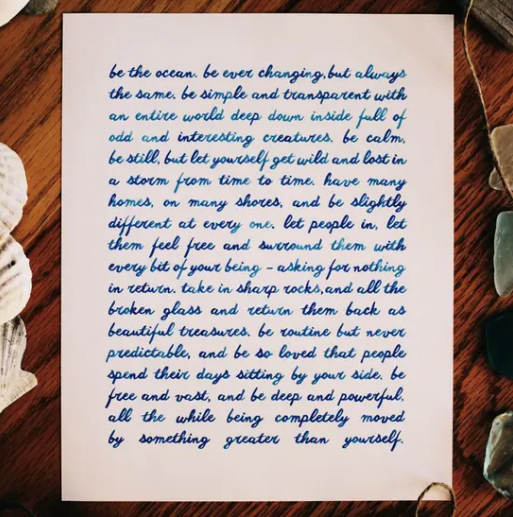 be the ocean. be ever changing, but always
the same. be simple and transparent with
an entire world deep down inside full of
odd and interesting creatures. be calm,
be still, but let yourself get wild and lost in
a storm from time to time. have many
homes, on many shores, and be slightly
different at every one. let people in, let
them feel free and surround them with
every bit of your being - asking for nothing
in return. take in sharp rocks, and all the
broken glass and return them back as
beautiful treasures. be routine but never
predictable, and be so loved that people
spend their days sitting by your side. be
free and vast, and be deep and powerful.
all the while being completely moved
by something greater than yourself.